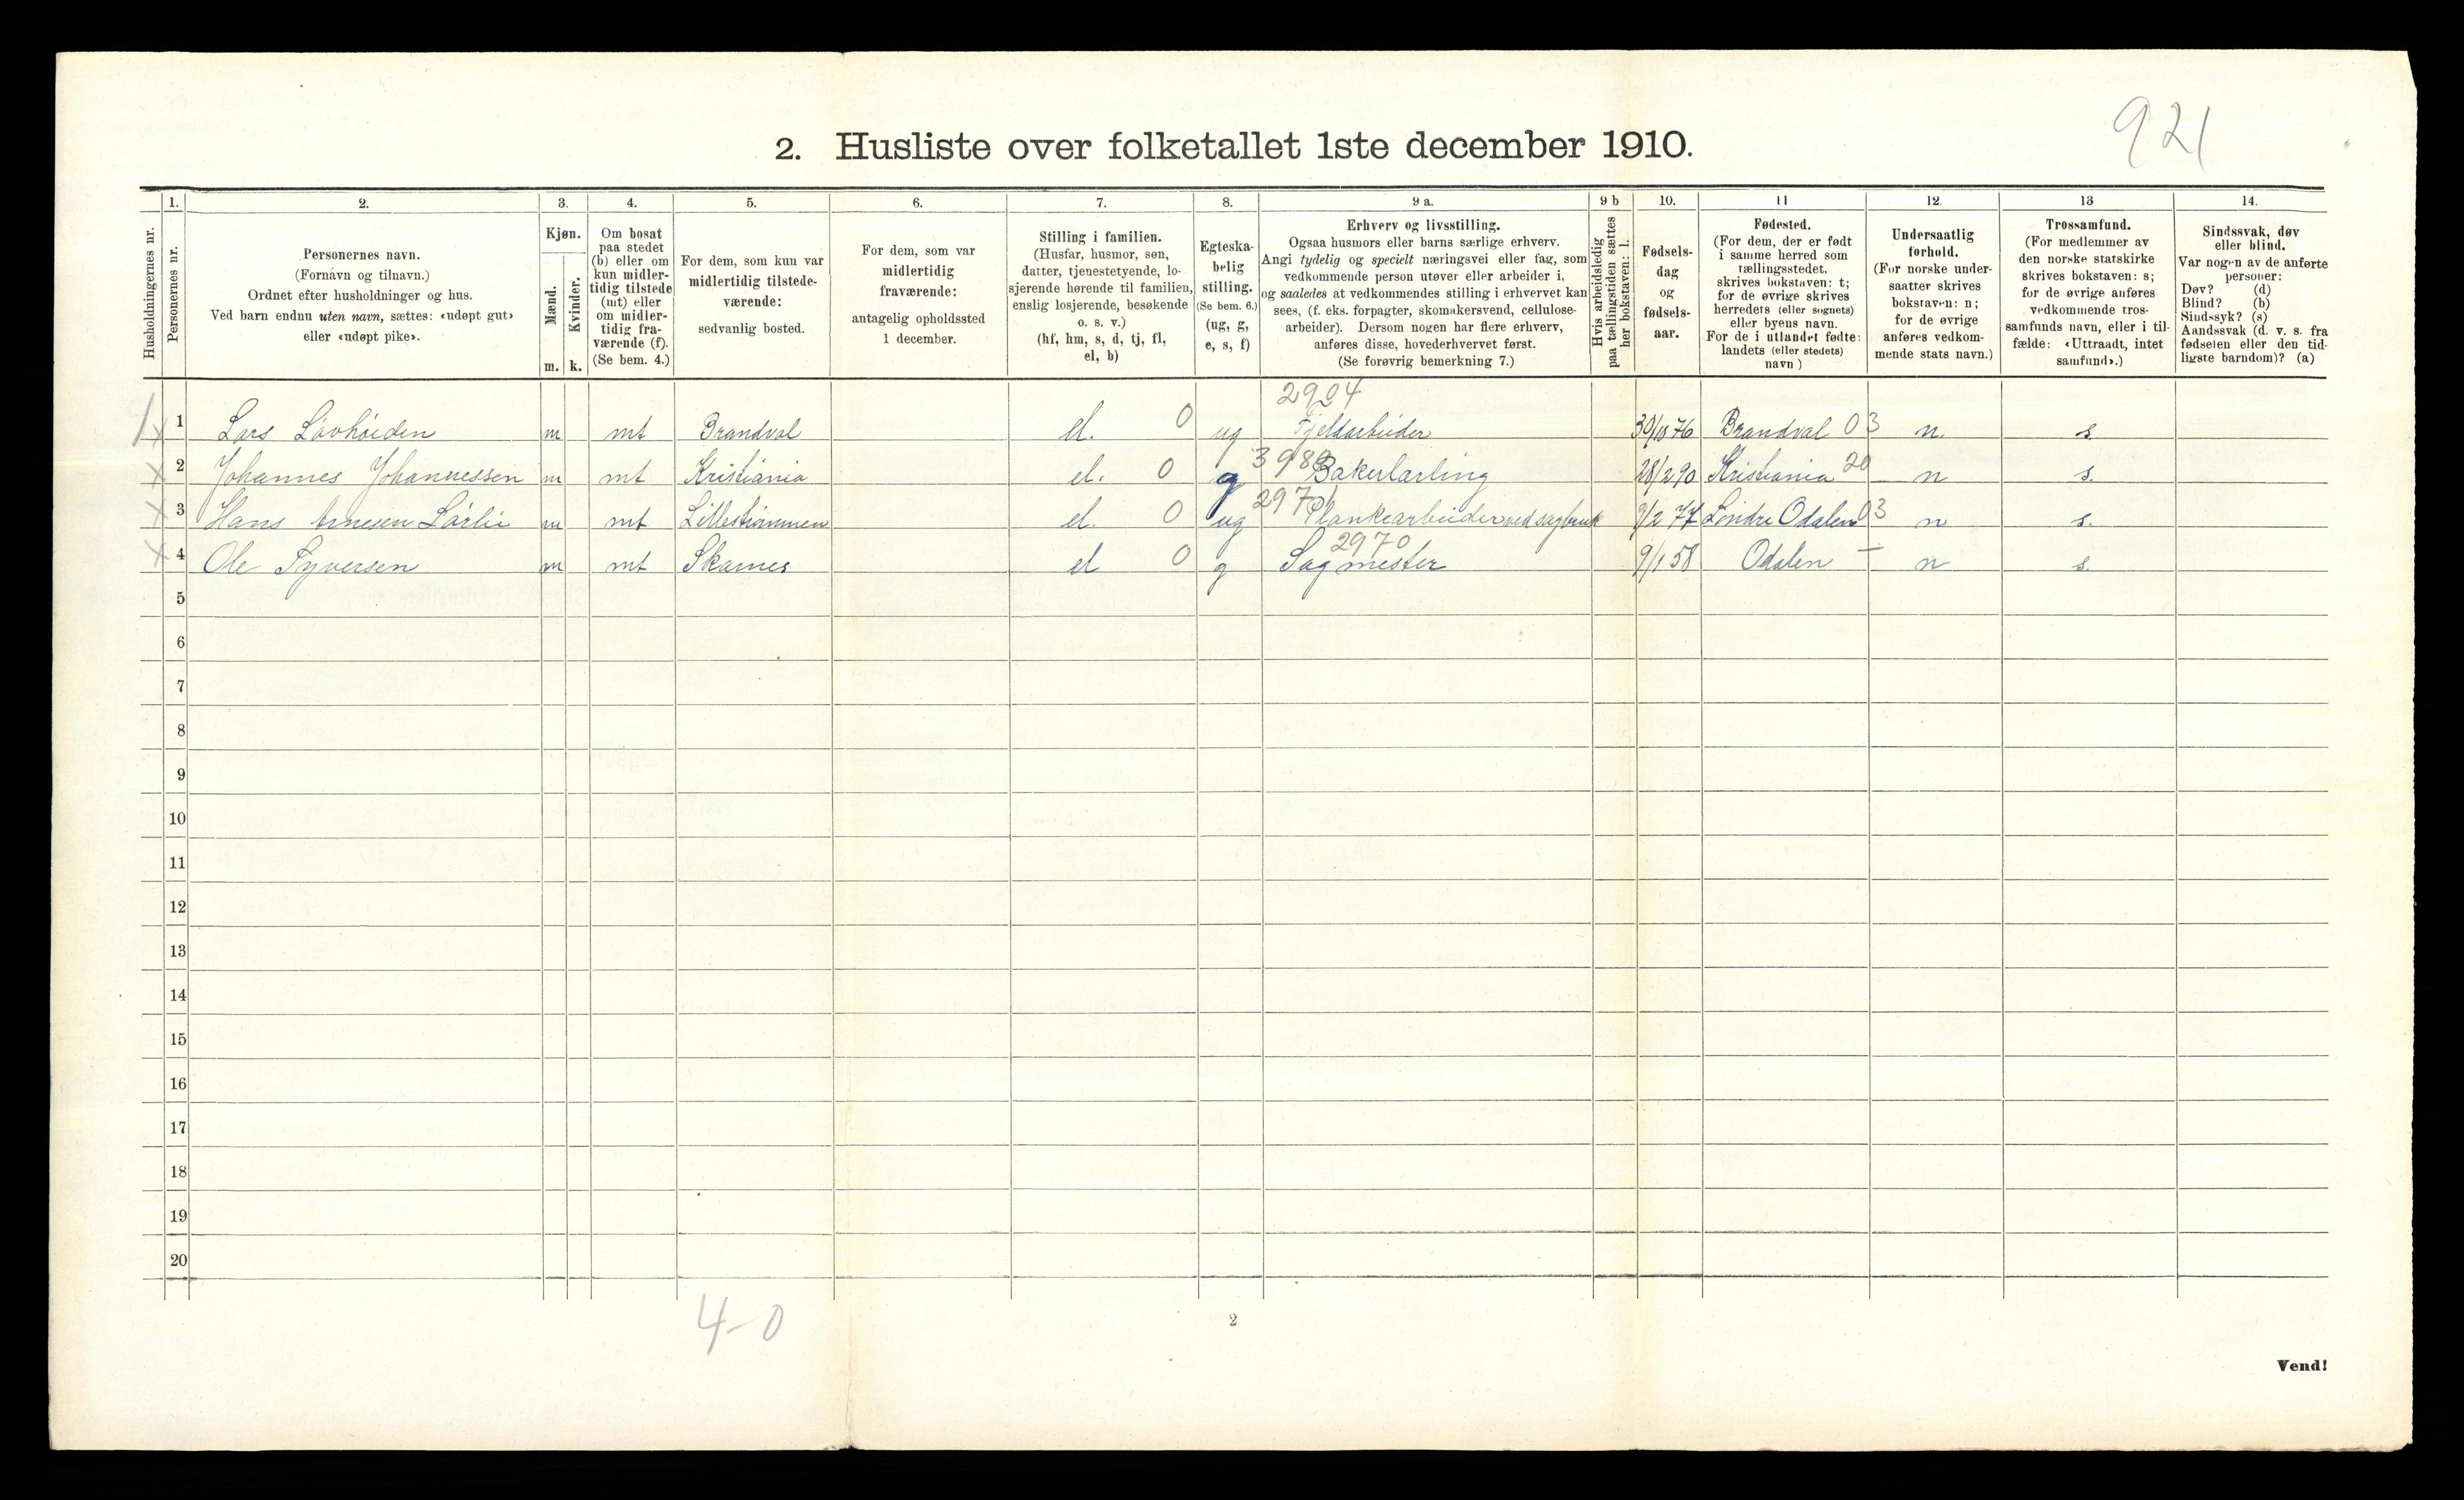 921
2. Husliste over folketallet 1ste december 1910.
Husholdningernes nr.
1.
Personernes nr.
2.
Personernes navn.
(Fornavn og tilnavn.)
Ordnet efter husholdninger og hus.
Ved barn endnu uten navn, sættes: «udøpt gut»
eller «udøpt pike».
3.
Kjøn.
Mænd.
Kvinder.
m. k.
4.
Om bosat
paa stedet
(b) eller om
kun midler-
tidig tilstede
(mt) eller
om midler-
tidig fra-
værende (f).
(Se bem. 4.)
5.
For dem, som kun var
midlertidig tilstede-
værende:
sedvanlig bosted.
6.
For dem, som var
midlertidig
fraværende:
antagelig opholdssted
1 december.
7.
Stilling i familien.
(Husfar, husmor, søn,
datter, tjenestetyende, lo-
sjerende hørende til familien,
enslig losjerende, besøkende
o. s. v.)
(hf, hm, s, d, tj, fl,
el, b)
8.
Egteska-
belig
stilling.
(Se bem. 6.)
(ug, g,
e, s, f)
9 a.
Erhverv og livsstilling.
Ogsaa husmors eller barns særlige erhverv.
Angi tydelig og specielt næringsvei eller fag, som
vedkommende person utøver eller arbeider i,
og saaledes at vedkommendes stilling i erhvervet kan
sees, (f. eks. forpagter, skomakersvend, cellulose-
arbeider). Dersom nogen har flere erhverv,
anføres disse, hovederhvervet først.
(Se forøvrig bemerkning 7.)
9 b
Hvis arbeidsledig
paa tællingstiden sættes
her bokstaven: l.
10.
Fødsels-
dag
og
fødsels-
aar.
11
Fødested.
(For dem, der er født
i samme herred som
tællingsstedet,
skrives bokstaven: t;
for de øvrige skrives
herredets (eller sognets)
eller byens navn.
For de i utlandet fødte:
landets (eller stedets)
navn )
12.
Undersaatlig
forhold.
(For norske under-
saatter skrives
bokstaven: n;
for de øvrige
anføres vedkom-
mende stats navn.)
13
Trossamfund.
(For medlemmer av
den norske statskirke
skrives bokstaven: s;
for de øvrige anføres
vedkommende tros-
samfunds navn, eller i til-
fælde: «Uttraadt, intet
samfund».)
14.
Sindssvak, døv
eller blind.
Var nogen av de anførte
personer:
Døv? (d)
Blind? (b)
Sindssyk? (s)
Aandssvak (d. v. s. fra
fødselen eller den tid-
ligste barndom)? (a)
2904
1 x 1 Lars Lövhöiden m mt Brandval el. 0 ug Fjeldarbeider 30/10 76 Brandval 03 n. s.
x 2 Johannes Johannessen m mt Kristiania el. 0 g Bakerlærling 28/2 90 Kristiania 20 n s.
x 3 Hans Arnesen Lörlie m mt Lilleströmmen el. 0 ug Plankearbeider ved sagbruk 9/2 77 Söndre Odalen 03 n s.
2970
x 4 Ole Syversen m mt Skarnes el 0 g Sagmester 9/1 58 Odalen — n s.
5
6
7
8
9
10
11
12
13
14
15
16
17
18
19
20
4-0
2
Vend!